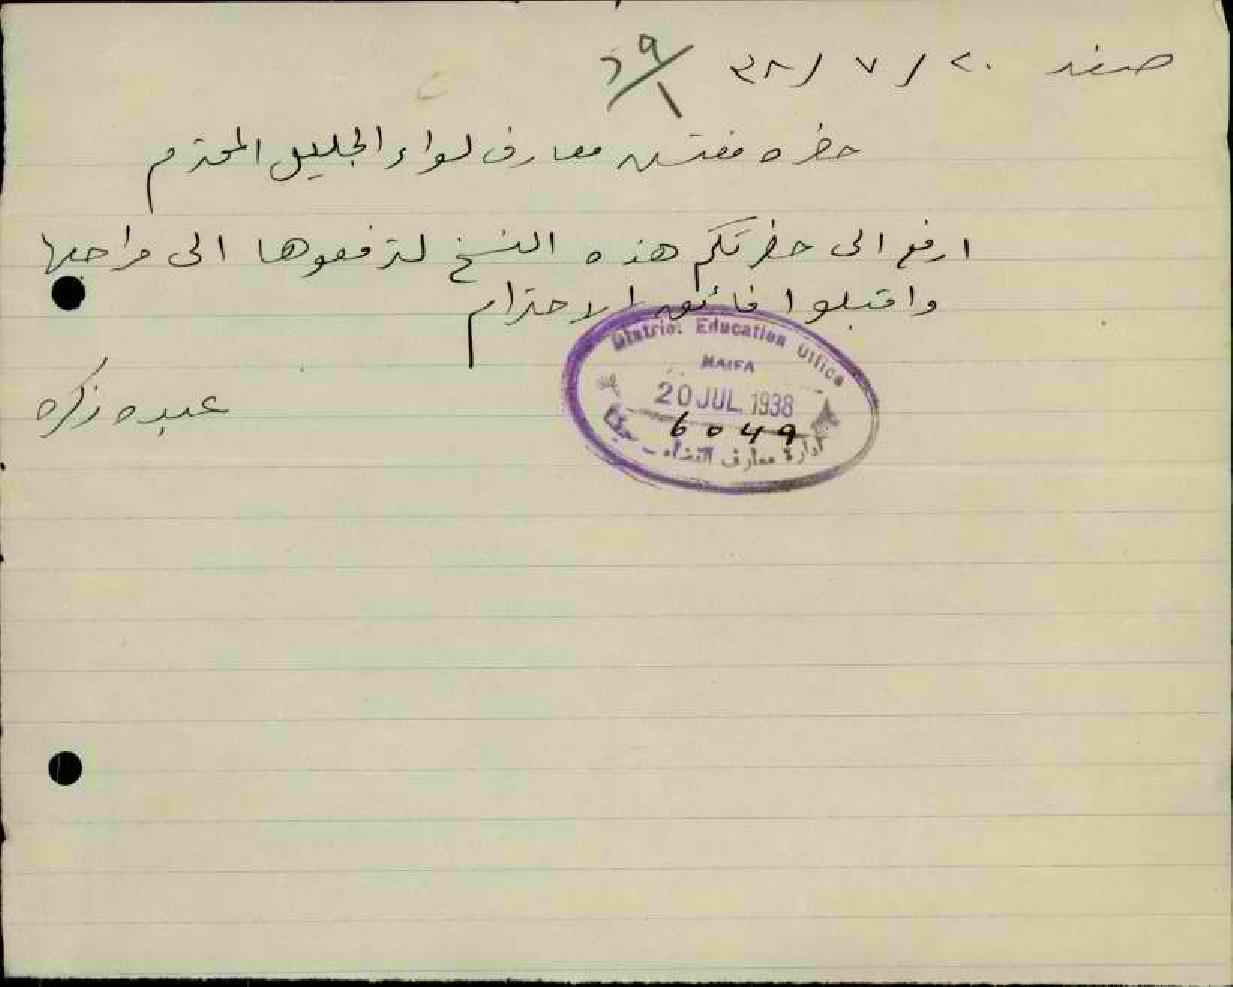 صفد ٢٠ / ٧ / ٣٨
حضرة مفتش معارف لواء الجليل المحترم
ارفع الى حضرتكم هذه النسخ لترفعوها الى مراجعها
واقبلوا فائق الاحترام
عبده
District Education Office
HAIFA
20 JUL 1938
6049
ادارة معارف القضاء - حيفا